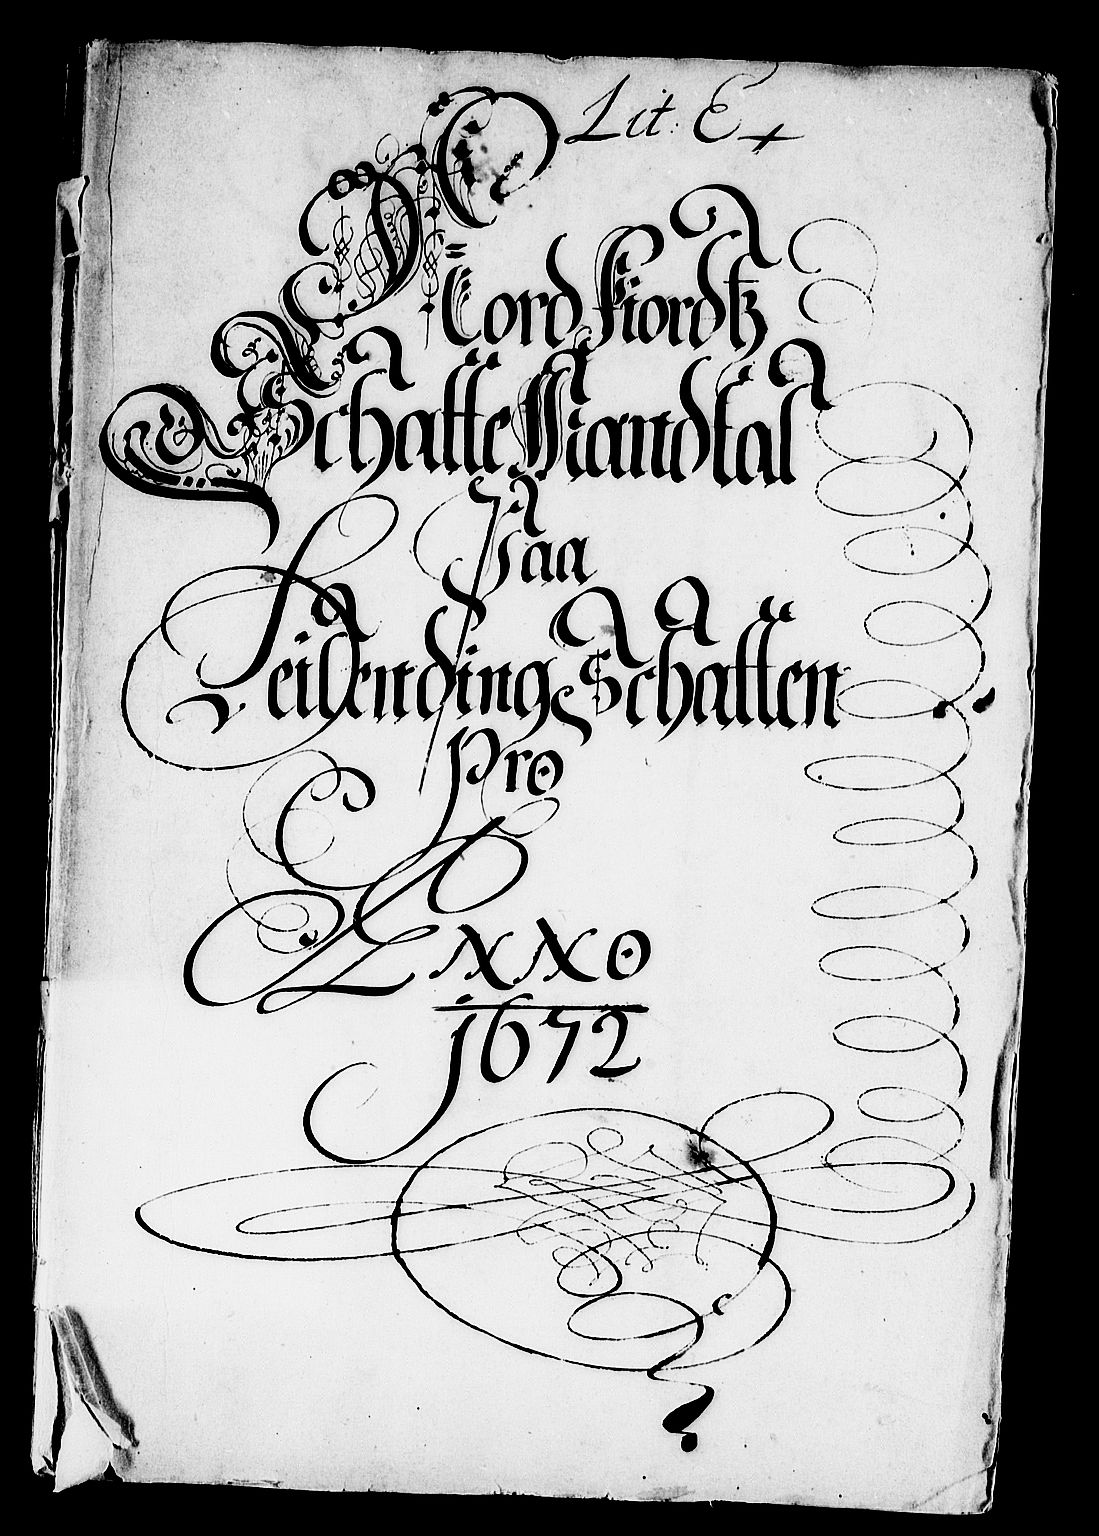 Lit: E
Nord Fiordtz
Schatte Mandtal
Paa
Leilending Schatten
Pro
Anno
1672